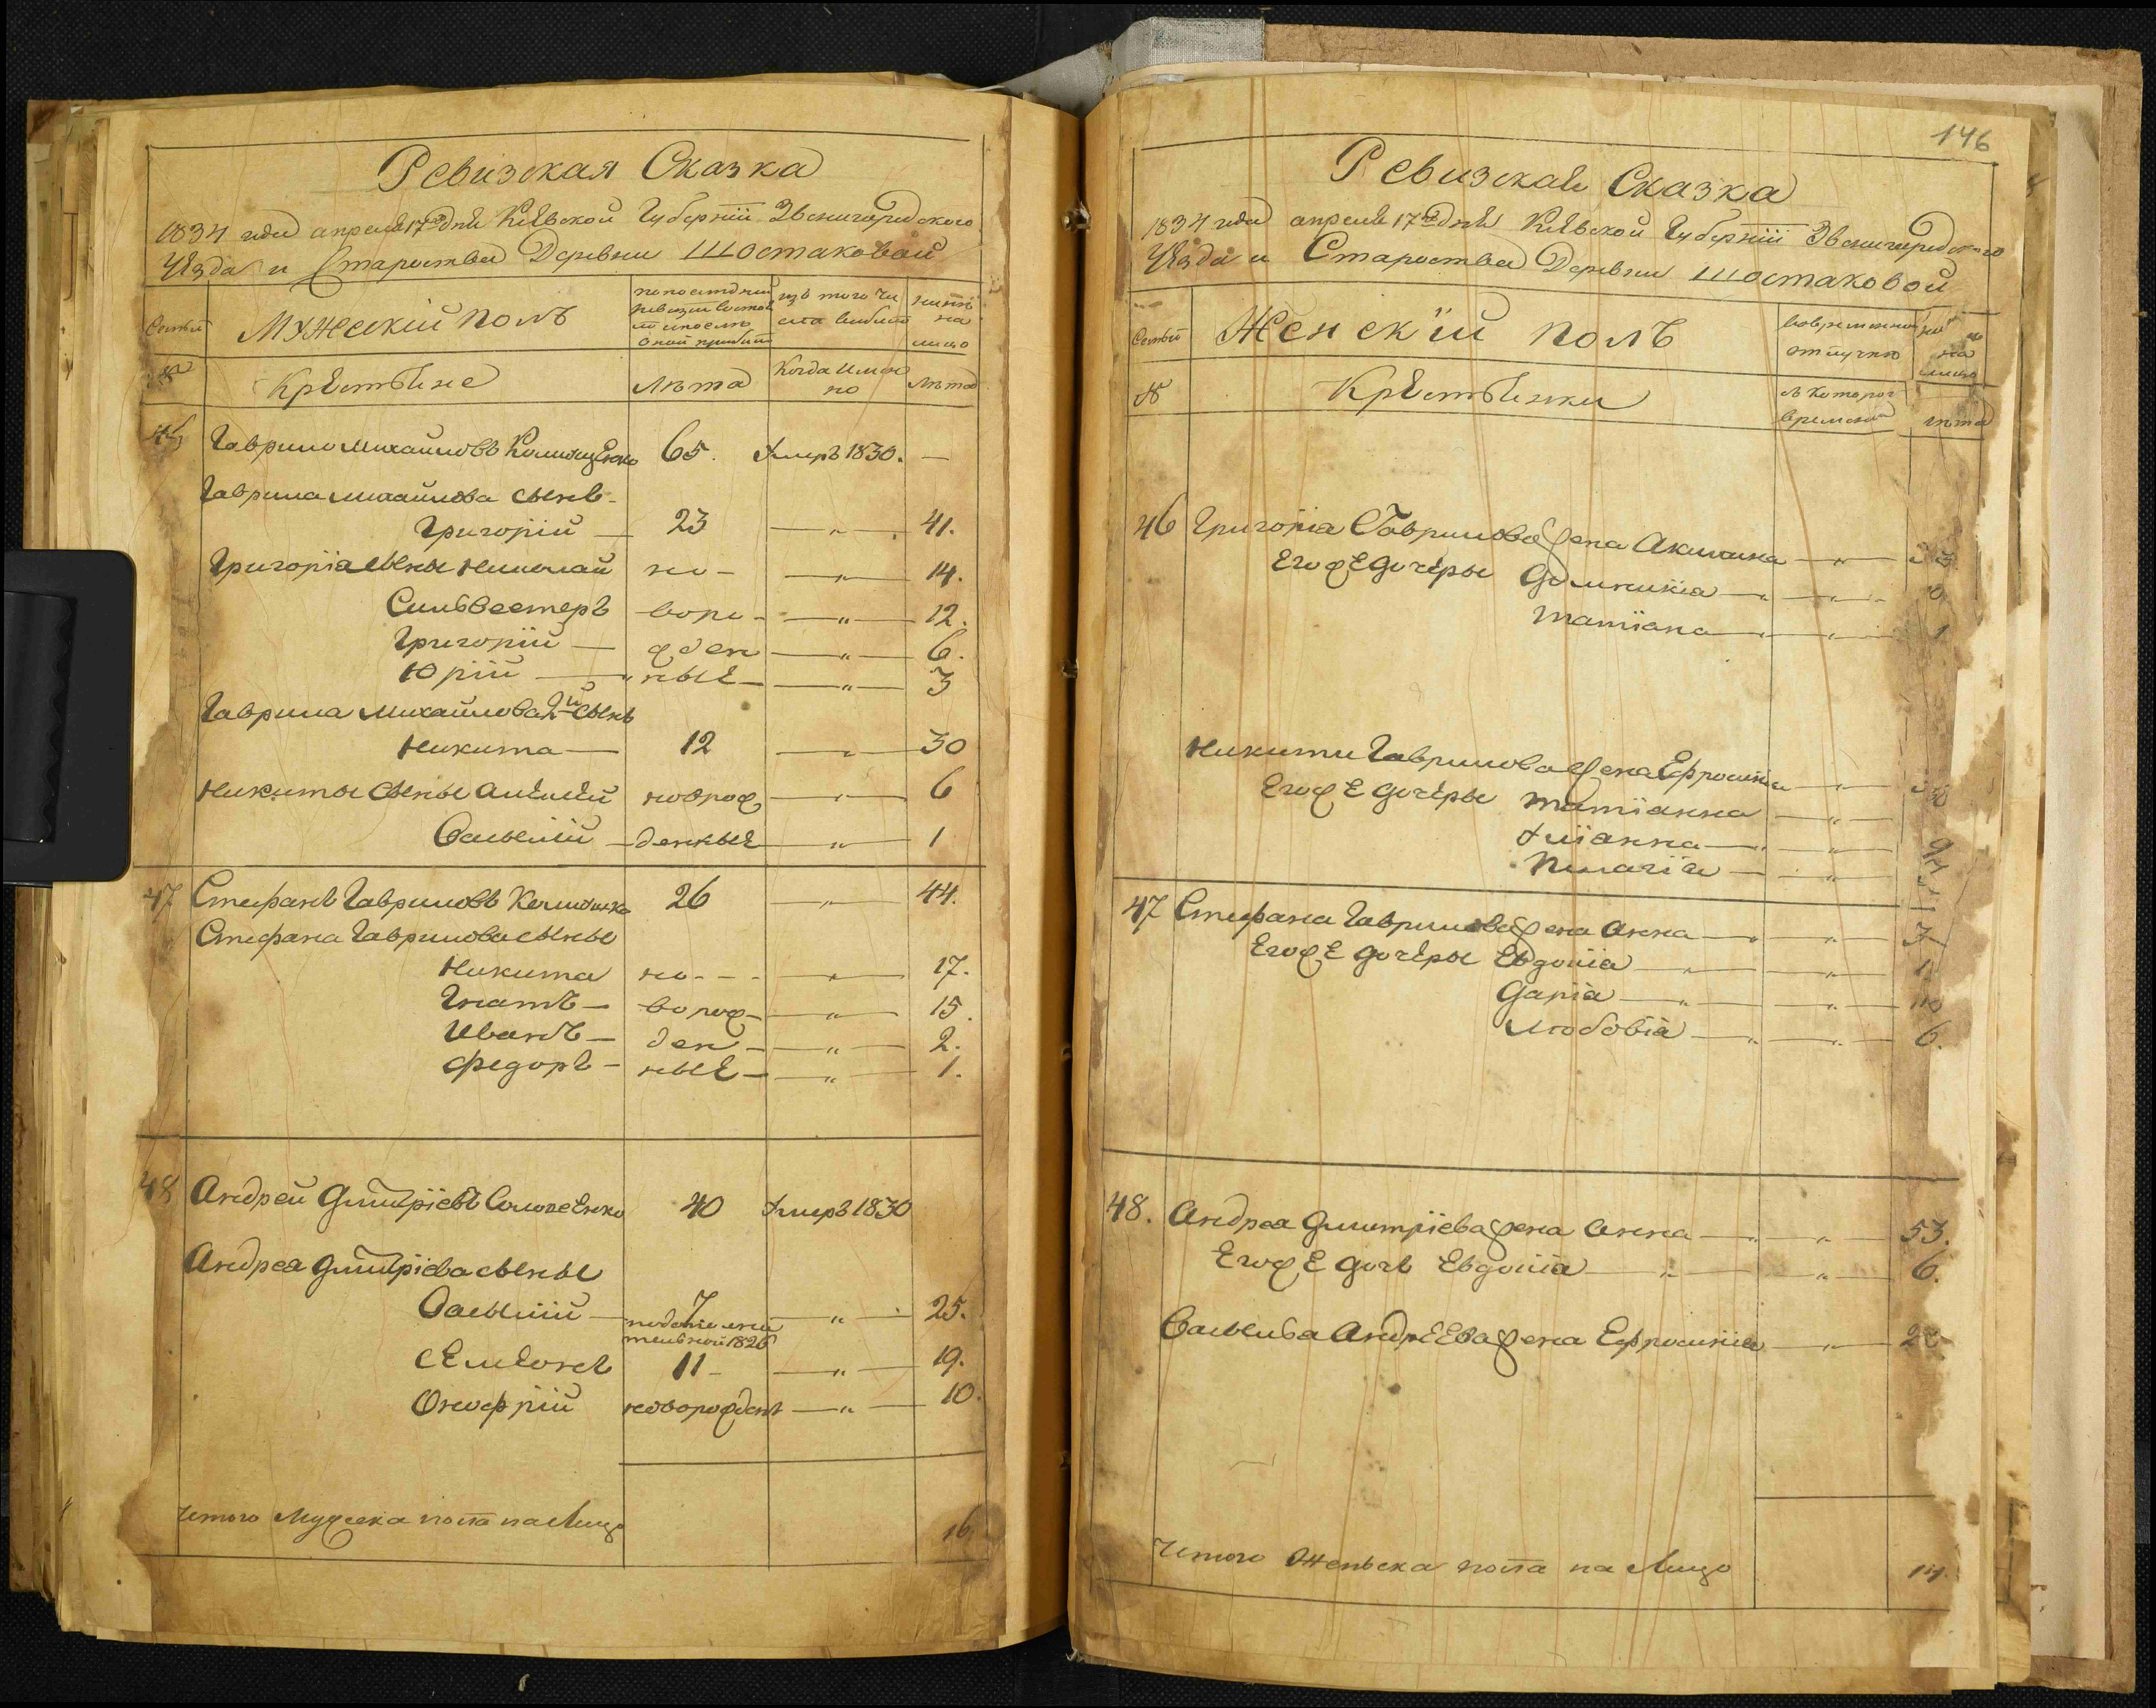 Ревизская Сказка
1834 года апреля 17го дня Киевской Губернiи Звенигородского
Уезда и Староства Деревни Шостаковой
Семьи
Мужеский полъ
по последней ревизiи состояло и после оной прибыло
изъ того числа выбыло
ныне на лицо
№
Крестьяне
Лета
Когда именно
Лета
46 Гаврило Михайловъ 65. Умеръ 1830. —
Гаврила Михайлова сынъ
Григорiй — 23 — „ — 41.
Григорiа сыны Николай но- — „ — 14.
Сильвестеръ воро- — „ — 12.
Григорiй — жден — „ — 6.
Юрiй — ныЕ — „ — 3
Гаврила Михайлова 2й сынъ
Никита — 12 — „ — 30
Никиты сыны Алексей новрож — „ — 6
Василiй — денныЕ — „ — 1
47 Стефанъ Гавриловъ 26 — „ — 44.
Стефана Гаврилова сыны
Никита но- - - — „ — 17.
Игнатъ — ворож- — „ — 15.
Иванъ — ден- — „ — 2.
Федоръ — ныЕ — „ — 1.
48 Андрей Дмитрiевъ 40 Умеръ 1830
Андрея Дмитрiева сыны
Василiй — 7 — „ — 25.
1826
СЕмЕонъ 11 - — „ — 19.
Онофрiй новорожденъ — „ — 10.
Итого Мужеска пола на Лицо 16.
146
Ревизская Сказка
1834 года апреля 17го дня Киевской Губернiи Звенигородского
Уезда и Староства Деревни Шостаковой
Семьи
Женскiй полъ
Во временной отлучке
ныне на лицо
№
Крестьянки
Съ которого времени
лета
46 Григорiа Гаврилова жена Акилина — „ —
Его жЕ дочЕры Домникiа — „ —
Татiана — „ — 1
Никиты Гаврилова жена Ефросинiа — „ —
Его жЕ дочЕры Татiанна — „ —
Улiанна — „ —
Пелагiа — „ —
47 Стефана Гаврилова жена Анна — „ —
Его жЕ дочЕры Евдокiа — „ —
Дарiа — „ — 10
Любовiа — „ — 6.
48. Андреа Дмитрiева жена Анна — „ — 53.
Его жЕ дочь Евдокiа — „ — 6.
Василiва АндрЕЕва жена Ефросинiа — „ —
Итого Женьска пола на Лицо 14.